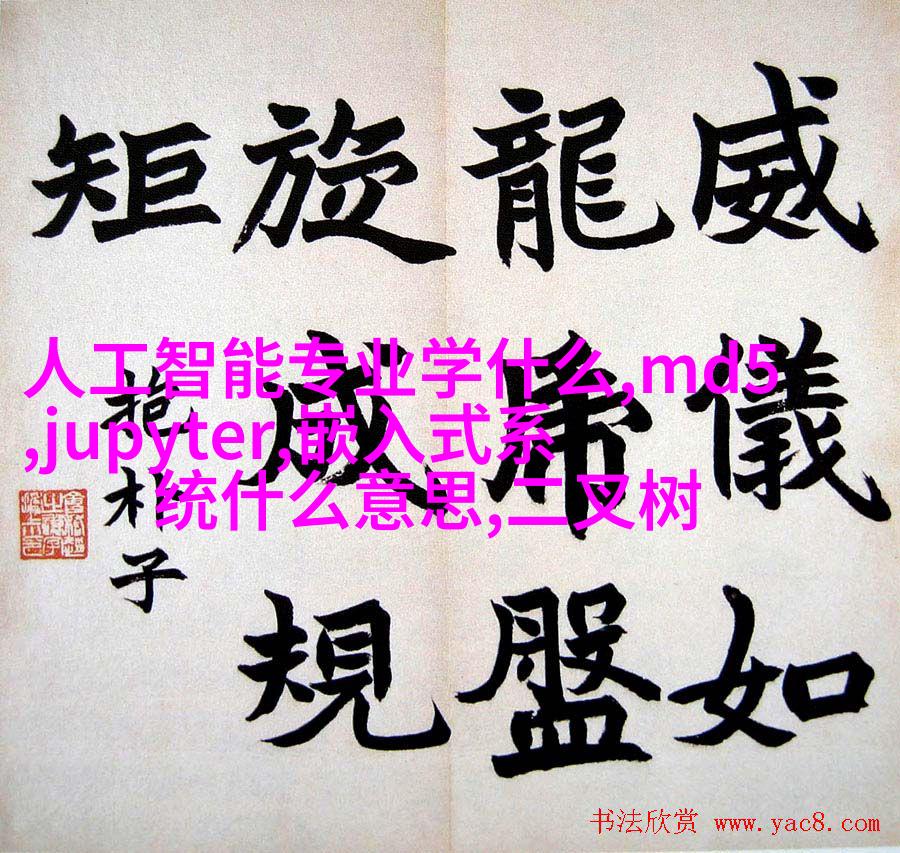 威儀如
龍虎盤
旋成規
矩
抱朴子
人工智能专业学什么,md5
,jupyter,嵌入式系
统什么意思,二叉树
书法欣赏 www.yac8.com